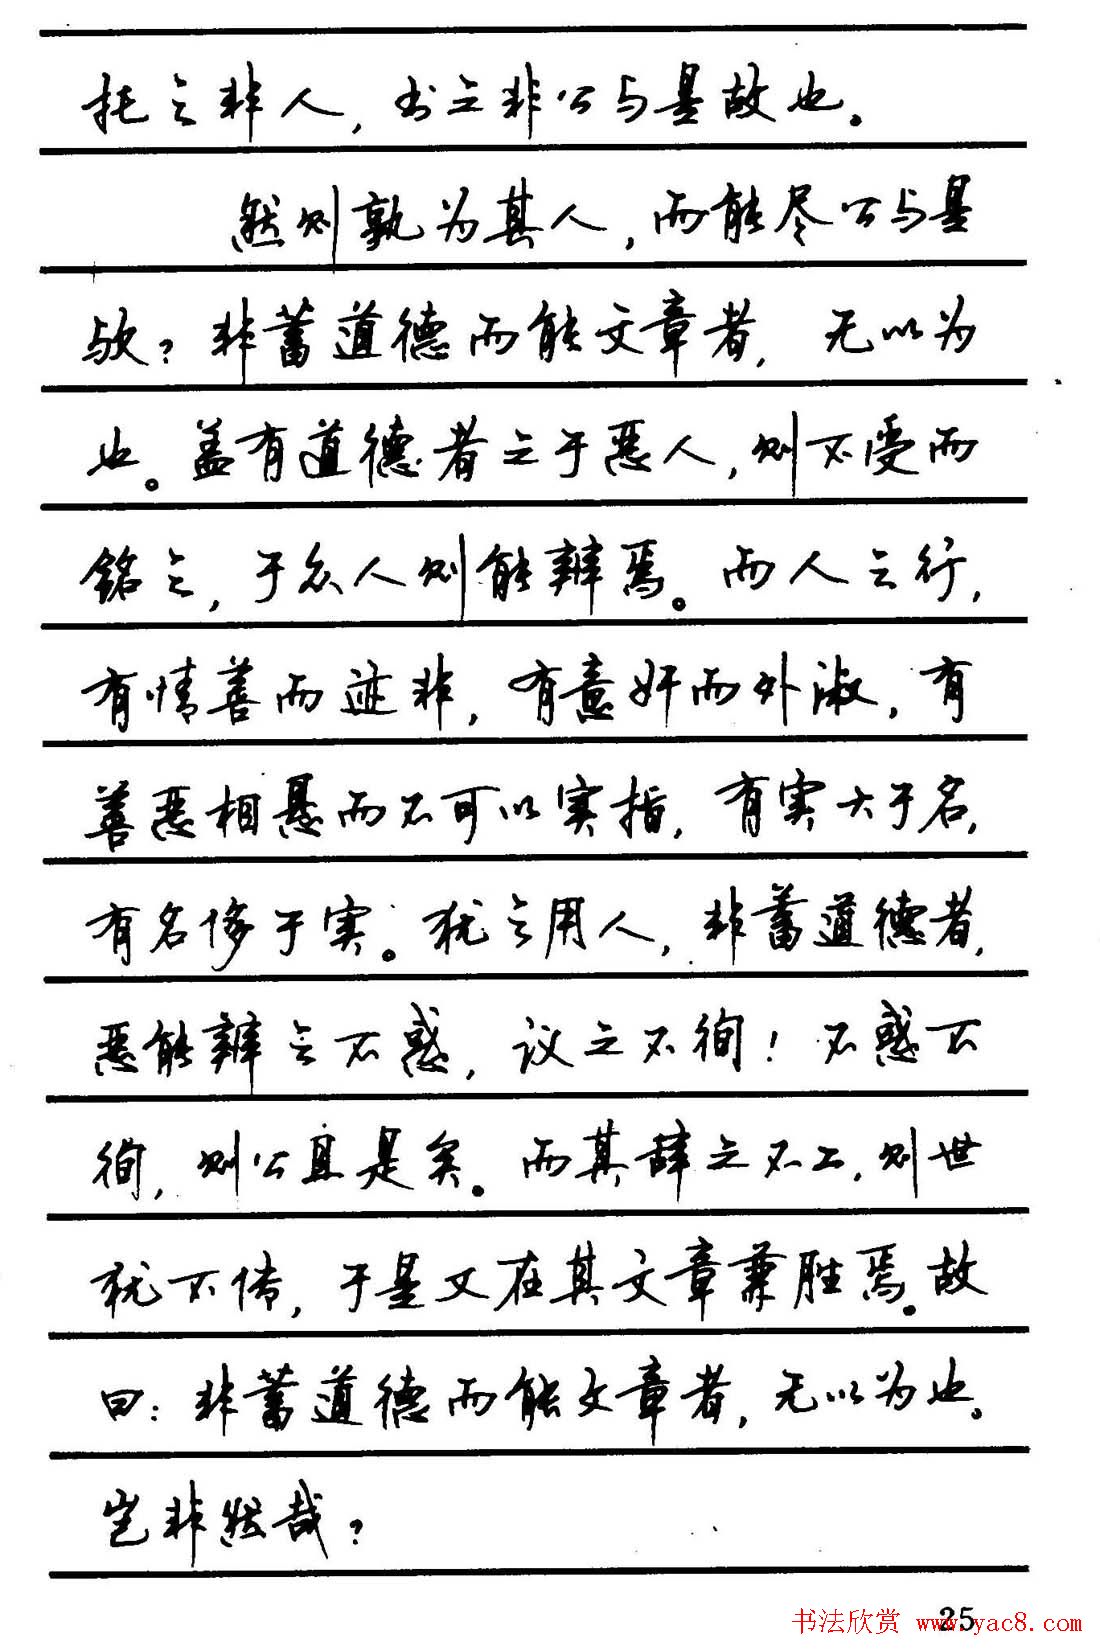 托之非人，书之非公与是故也。
然则孰为其人，而能尽公与是
欤？非蓄道德而能文章者，无以为
也。盖有道德者之于恶人，则不受而
铭之，于众人则能辨焉。而人之行，
有情善而迹非，有意奸而外淑，有
善恶相悬而不可以实指，有实大于名，
有名侈于实。犹之用人，非蓄道德者，
恶能辨之不惑，议之不徇！不惑不
徇，则公且是矣。而其辞之不工，则世
犹不传，于是又在其文章兼胜焉。故
曰：非蓄道德而能文章者，无以为也。
岂非然哉？
25
书法欣赏 www.yac8.com